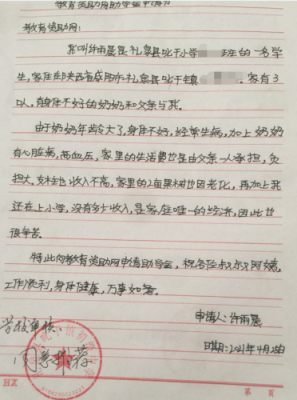 教育资助网助学金申请书
教育资助网:
我叫许雨晨是礼泉县叱干小学 班的一名学
生,家住在陕西省咸阳市礼泉县叱干镇 。家有3
口人,有身体不好的奶奶和父亲与我。
由于奶奶年龄大了,身体不好,经常生病,加上奶奶
有心脏病,高血压,家里的生活费也是由父亲一人承担,负
担大,支出大,收入不高,家里的2亩果树也因老化,再加上我
还在上小学,没有多少收入,是家庭唯一的经济,因此也
很辛苦。
特此向教育资助网申请助学金,祝各位叔叔阿姨,
工作顺利,身体健康,万事如意。
申请人:许雨晨
学校审核:
同意推荐
日期:2021年4月2日